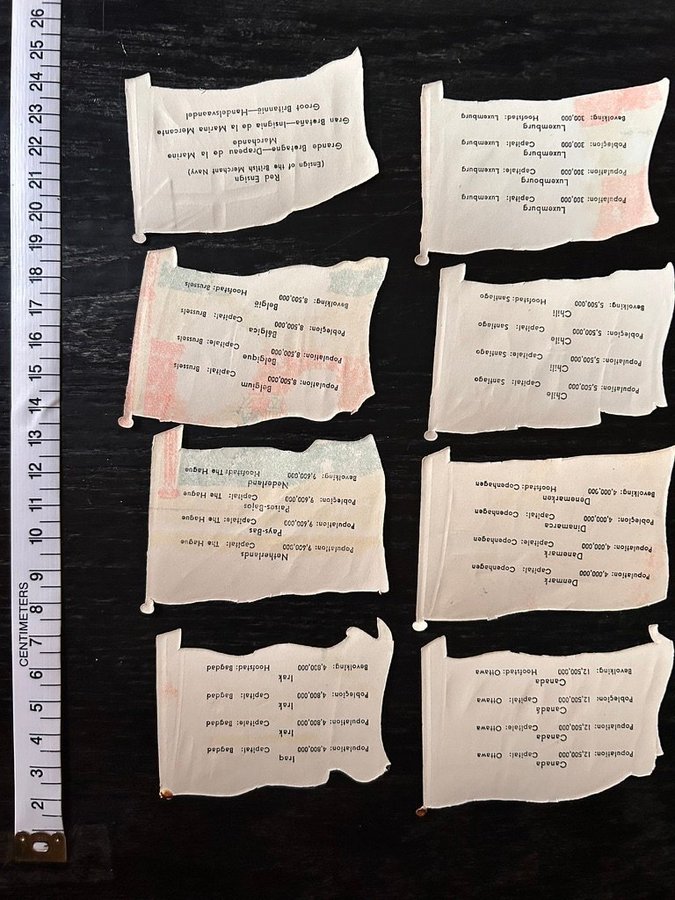 26
25
24
23
22
21
20
19
18
17
16
15
14
13
12
11
10
9
8
7
6
5
4
3
2
CENTIMETERS
Red Ensign
(Ensign of the British Merchant Navy)
Grande Bretagne—Drapeau de la Marine
Marchande
Gran Bretaña—Insignia de la Marina Mercante
Groot Britannië—Handelsvaandel
Luxemburg
Population: 300,000 Capital: Luxemburg
Luxembourg
Population: 300,000 Capitale: Luxemburg
Luxemburg
Pobleçion: 300,000 Capital: Luxemburg
Luxemburg
Bevolking: 300,000 Hoofstad: Luxemburg
Belgium
Population: 8,500,000 Capital: Brussels
Belgique
Population: 8,500,000 Capitale: Brussels
Bélgica
Pobleçion: 8,500,000 Capital: Brussels
België
Bevolking: 8,500,000 Hoofstad: Brussels
Chile
Population: 5,500,000 Capital: Santiago
Chili
Population: 5,500,000 Capitale: Santiago
Chile
Pobleçion: 5,500,000 Capital: Santiago
Chili
Bevolking: 5,500,000 Hoofstad: Santiago
Netherlands
Population: 9,600,000 Capital: The Hague
Pays-Bas
Population: 9,600,000 Capitale: The Hague
Paisos-Bajos
Pobleçion: 9,600,000 Capital: The Hague
Nederland
Bevolking: 9,600,000 Hoofstad: The Hague
Denmark
Population: 4,000,000 Capital: Copenhagen
Danemark
Population: 4,000,000 Capitale: Copenhagen
Dinamarca
Pobleçion: 4,000,000 Capital: Copenhagen
Denemarken
Bevolking: 4,000,000 Hoofstad: Copenhagen
Iraq
Population: 4,800,000 Capital: Bagdad
Irak
Population: 4,800,000 Capitale: Bagdad
Irak
Pobleçion: 4,800,000 Capital: Bagdad
Irak
Bevolking: 4,800,000 Hoofstad: Bagdad
Canada
Population: 12,500,000 Capital: Ottawa
Canada
Population: 12,500,000 Capitale: Ottawa
Canadá
Pobleçion: 12,500,000 Capital: Ottawa
Canada
Bevolking: 12,500,000 Hoofstad: Ottawa